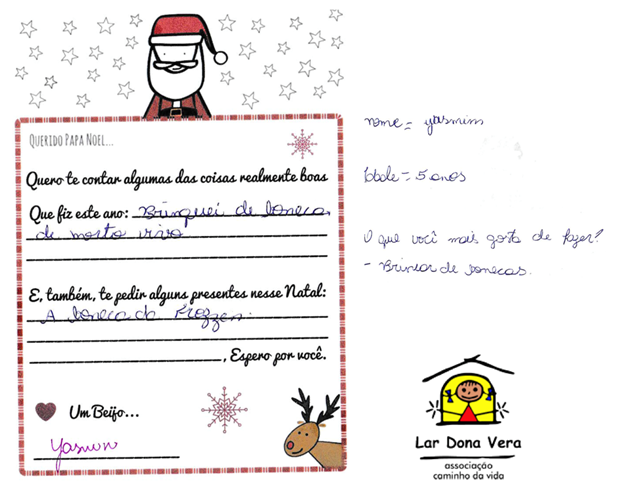 QUERIDO PAPAI NOEL...
Quero te contar algumas das coisas realmente boas
Que fiz este ano: Brinquei de boneca,
de morto vivo
E, também, te pedir alguns presentes nesse Natal:
A boneca da Frozzen.
, Espero por você.
Um Beijo...
Yasmin
nome = yasmim
Idade = 5 anos
O que você mais gosta de fazer?
- Brincar de bonecas.
Lar Dona Vera
associação
caminho da vida